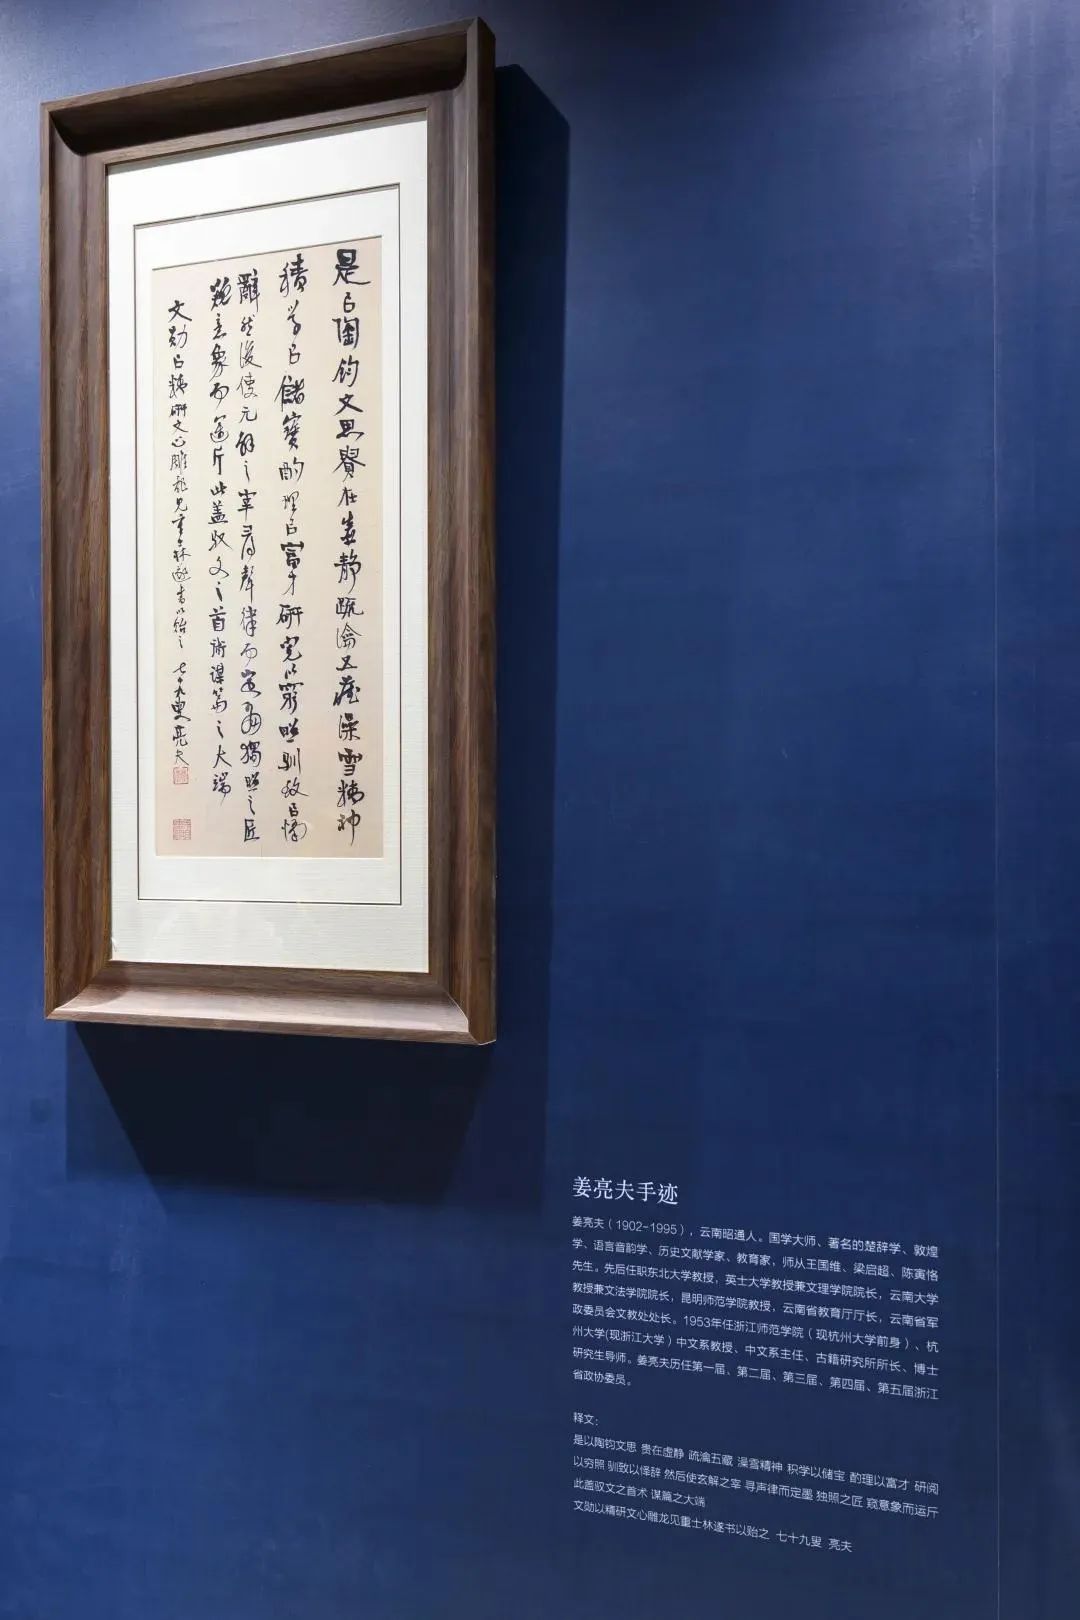 是㠯陶鈞文思貴在虛静疏瀹五藏澡雪精神
積學㠯儲寶酌理㠯富才研閱以窮照馴致㠯懌
辭然後使元解之宰尋聲律而定墨獨照之匠
窺意象而運斤此蓋馭文之首術謀篇之大端
文勛㠯精研文心雕龍見重士林遂書以貽之 七十九叟亮夫
姜亮夫手迹
姜亮夫（1902-1995），云南昭通人。国学大师、著名的楚辞学、敦煌
学、语言音韵学、历史文献学家、教育家，师从王国维、梁启超、陈寅恪
先生。先后任职东北大学教授，英士大学教授兼文理学院院长，云南大学
教授兼文法学院院长，昆明师范学院教授，云南省教育厅厅长，云南省军
政委员会文教处处长。1953年任浙江师范学院（现杭州大学前身）、杭
州大学(现浙江大学）中文系教授、中文系主任、古籍研究所所长、博士
研究生导师。姜亮夫历任第一届、第二届、第三届、第四届、第五届浙江
省政协委员。
释文：
是以陶钧文思 贵在虚静 疏瀹五藏 澡雪精神 积学以储宝 酌理以富才 研阅
以穷照 驯致以怿辞 然后使玄解之宰 寻声律而定墨 独照之匠 窥意象而运斤
此盖驭文之首术 谋篇之大端
文勋以精研文心雕龙见重士林遂书以贻之 七十九叟 亮夫